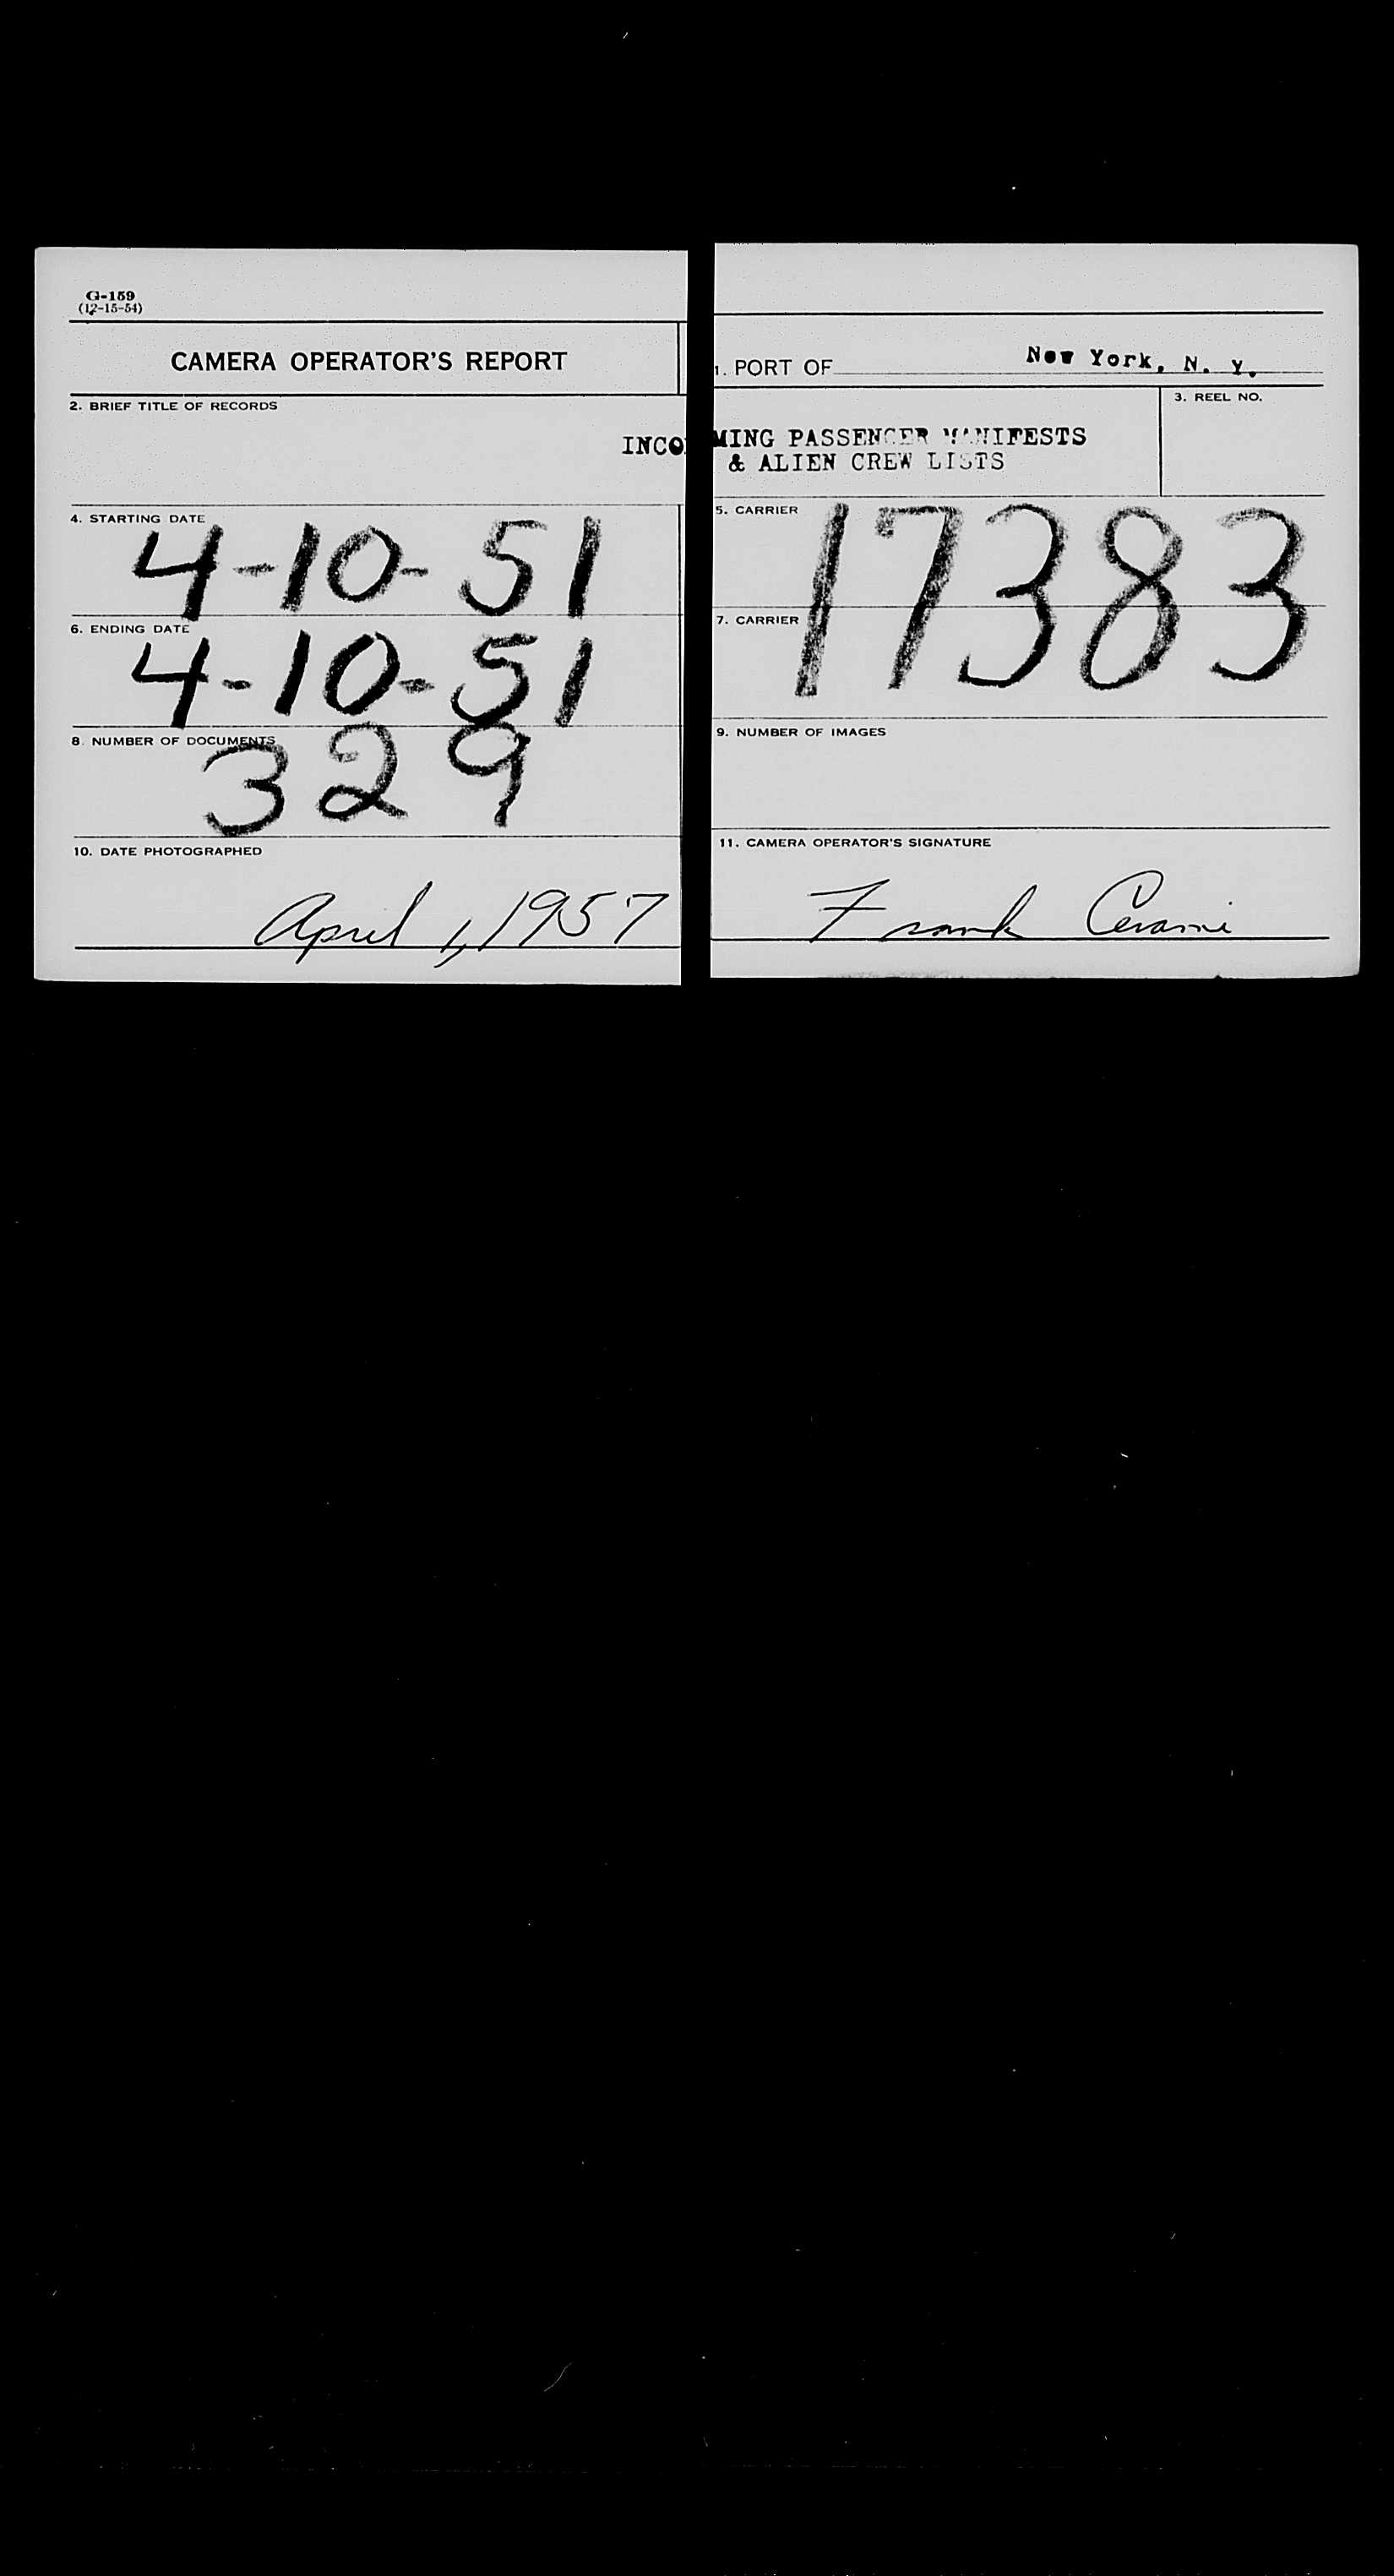 G-159
(12-15-54)
CAMERA OPERATOR'S REPORT
1. PORT OF New York, N. Y.
2. BRIEF TITLE OF RECORDS
INCOMING PASSENGER MANIFESTS
& ALIEN CREW LISTS
3. REEL NO.
4. STARTING DATE
4-10-51
5. CARRIER
17383
6. ENDING DATE
4-10-51
7. CARRIER
8. NUMBER OF DOCUMENTS
329
9. NUMBER OF IMAGES
10. DATE PHOTOGRAPHED
April 1, 1957
11. CAMERA OPERATOR'S SIGNATURE
Frank Cerami